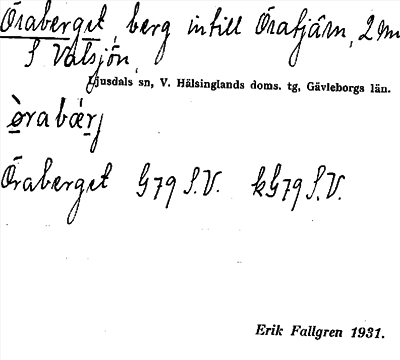 Öraberget, berg intill Öratjärn, 2 m
S Valsjön,
Ljusdals sn, V. Hälsinglands doms. tg, Gävleborgs län.
ørabærj
Öraberget G79 S.V. kG79 S.V.
Erik Fallgren 1931.